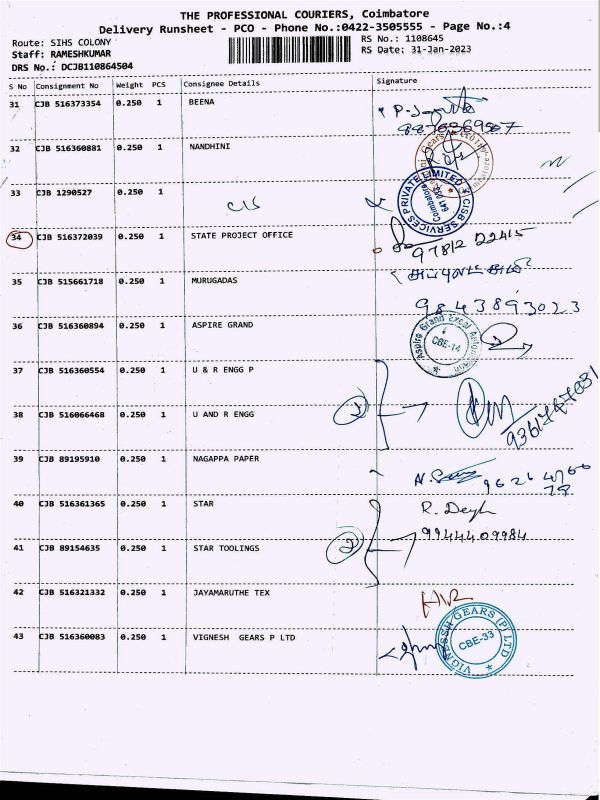 THE PROFESSIONAL COURIERS, Coimbatore
Delivery Runsheet - PCO - Phone No.:0422-3505555 - Page No.:4
Route: SIHS COLONY
RS No.: 1108645
Staff: RAMESHKUMAR
RS Date: 31-Jan-2023
DRS No.: DCJB110864504
S No Consignment No Weight PCS Consignee Details Signature
31 CJB 516373354 0.250 1 BEENA
32 CJB 516360881 0.250 1 NANDHINI
33 CJB 1290527 0.250 1
CISB SERVICES PRIVATE LIMITED
Coimbatore
34 CJB 516372039 0.250 1 STATE PROJECT OFFICE
97812 22415
35 CJB 515661718 0.250 1 MURUGADAS
9843893023
36 CJB 516360894 0.250 1 ASPIRE GRAND
CBE-14
37 CJB 516360554 0.250 1 U & R ENGG P
2
38 CJB 516066468 0.250 1 U AND R ENGG
39 CJB 89195910 0.250 1 NAGAPPA PAPER
40 CJB 516361365 0.250 1 STAR
2
9944409984
41 CJB 89154635 0.250 1 STAR TOOLINGS
42 CJB 516321332 0.250 1 JAYAMARUTHE TEX
43 CJB 516360083 0.250 1 VIGNESH GEARS P LTD
VIGNESSH GEARS (P) LTD
CBE-33